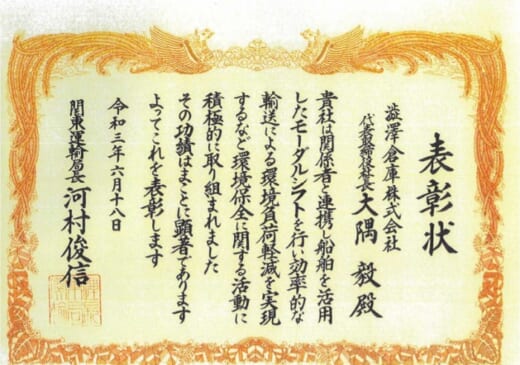 表彰状
澁澤倉庫株式会社
代表取締役社長 大隅 毅 殿
貴社は関係者と連携し船舶を活用
したモーダルシフトを行い効率的な
輸送による環境負荷軽減を実現
するなど環境保全に関する活動に
積極的に取り組まれました
その功績はまことに顕著であります
よってこれを表彰します
令和三年六月十八日
関東運輸局長 河村俊信